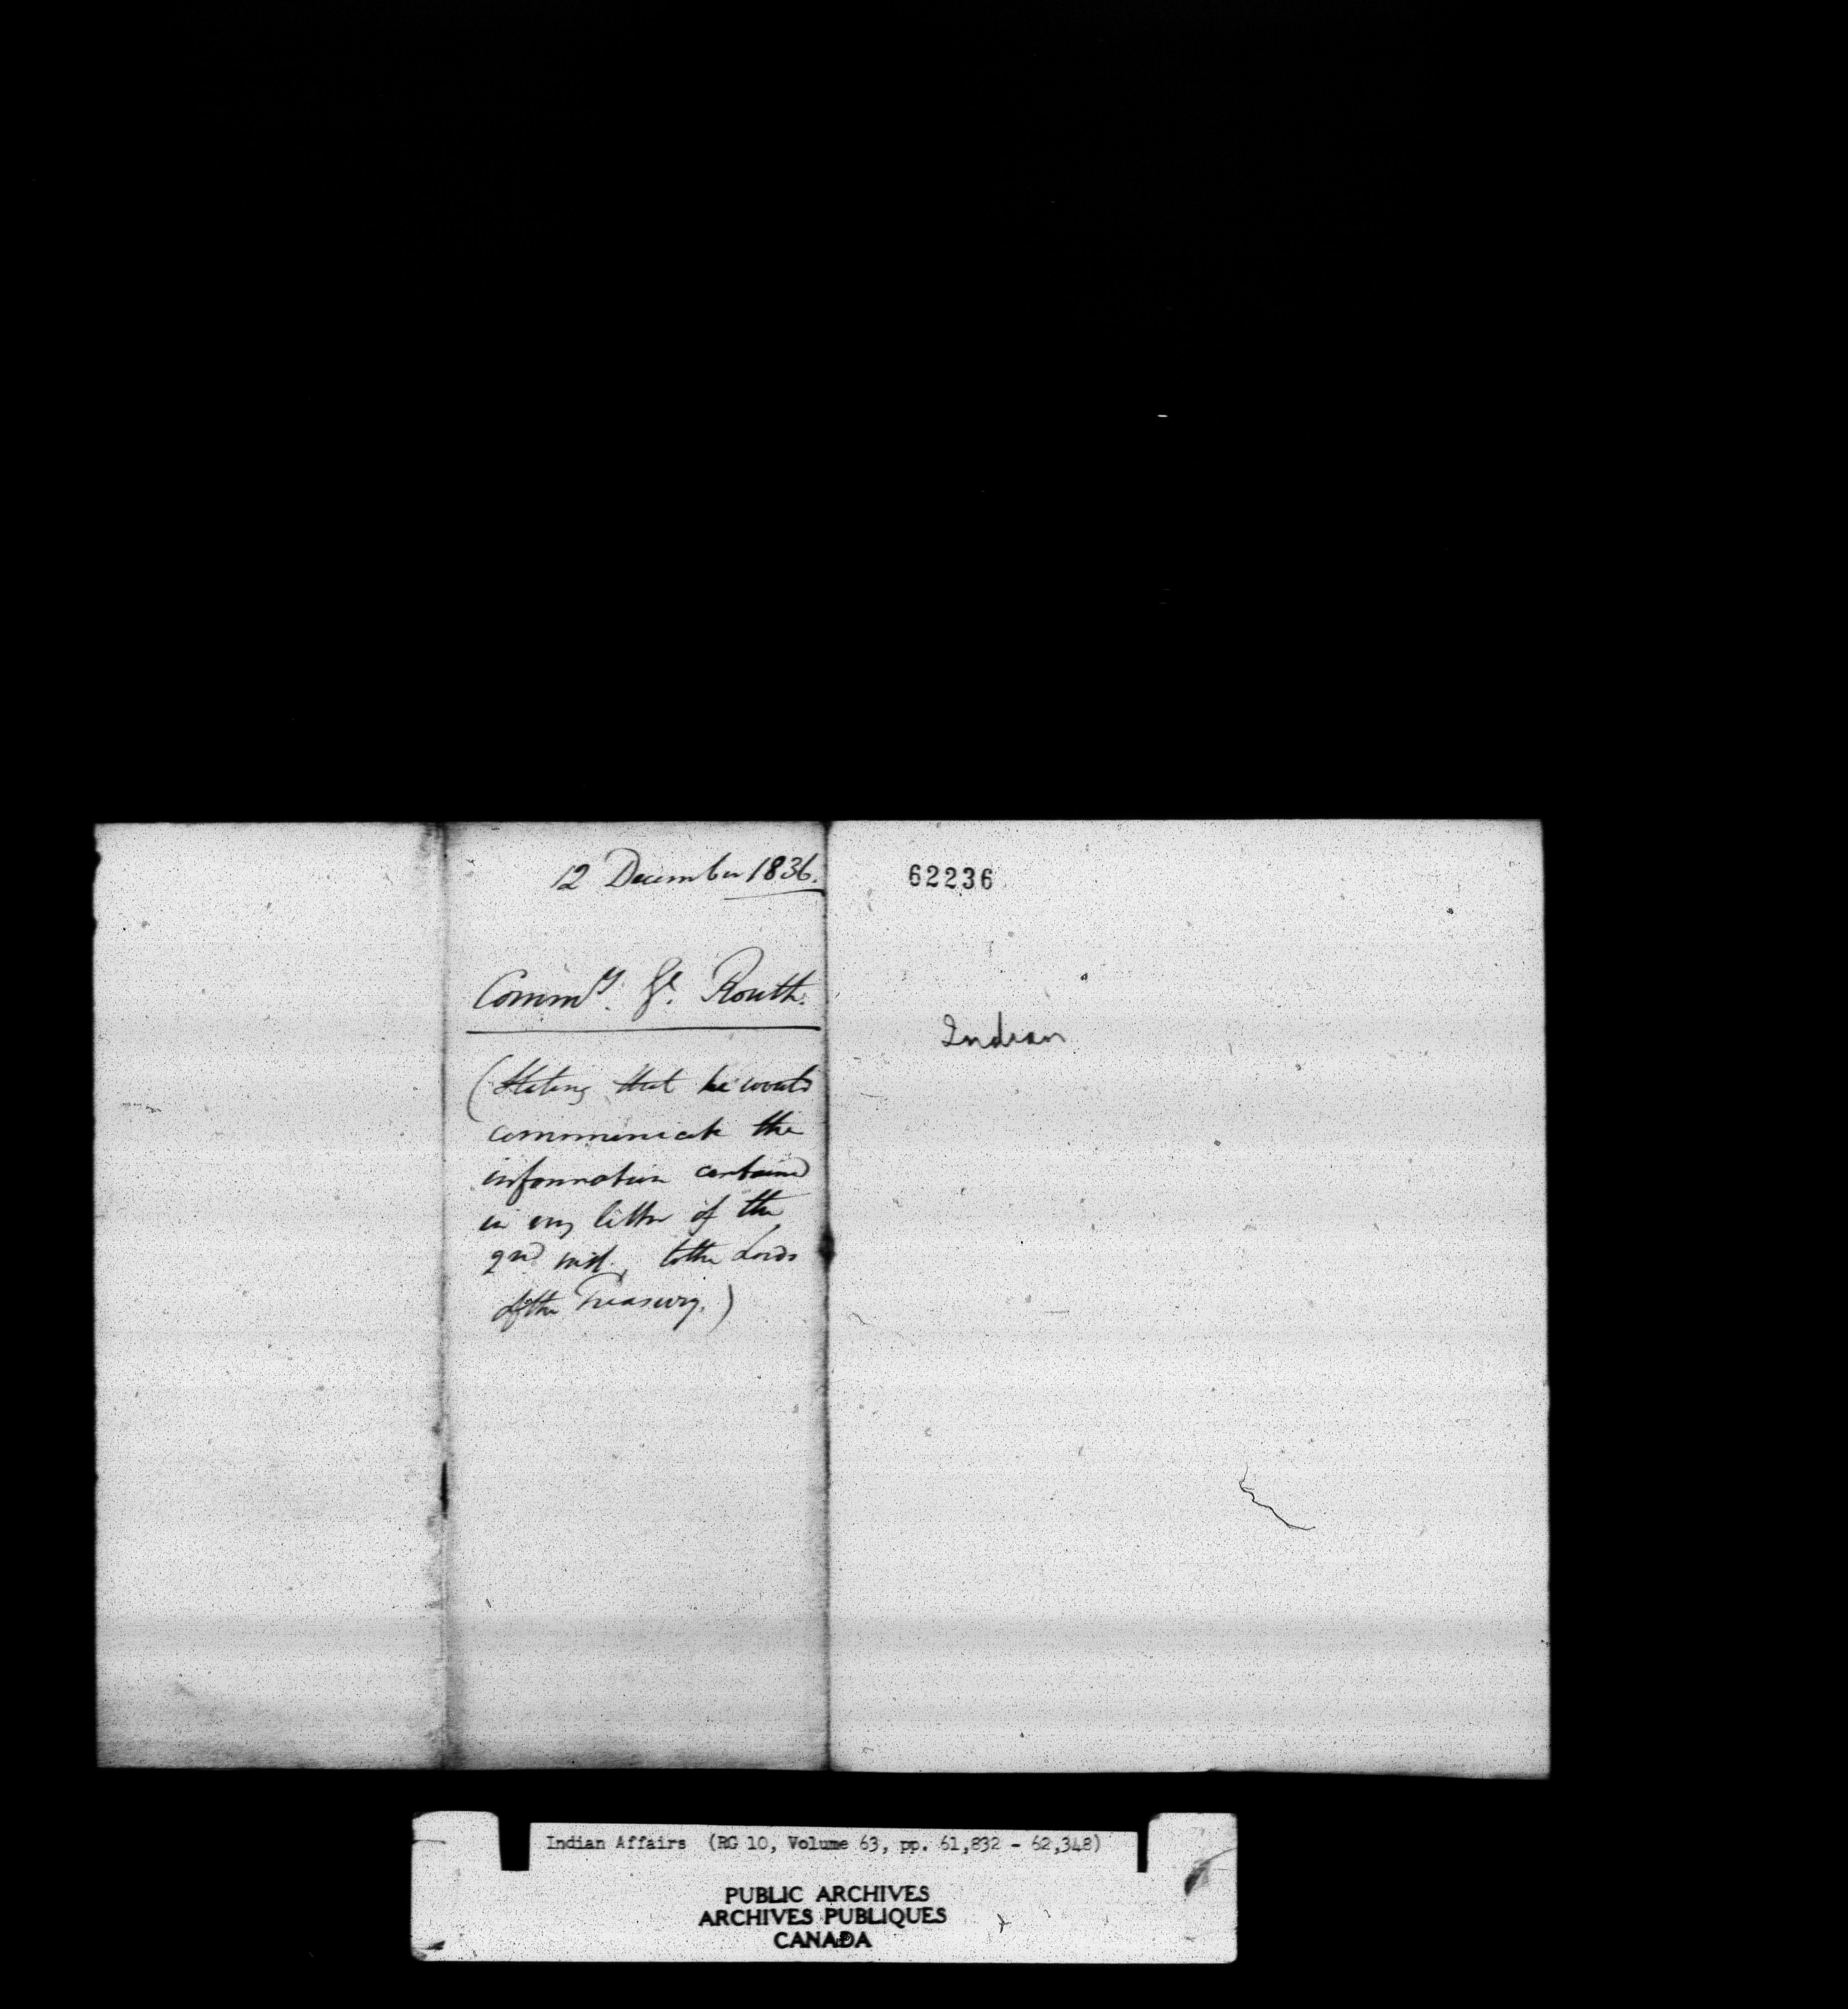 12 December 1836.
Commy. Gl. Routh.
(Stating that he would
communicate the
information contained
in my letter of the
2nd inst., to the Lords
of the Treasury.)
62236
Indian
Indian Affairs (RG 10, Volume 63, pp. 61,832 - 62,348)
PUBLIC ARCHIVES
ARCHIVES PUBLIQUES
CANADA